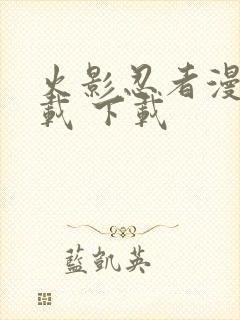 火影忍者漫
載 下載
藍凱英